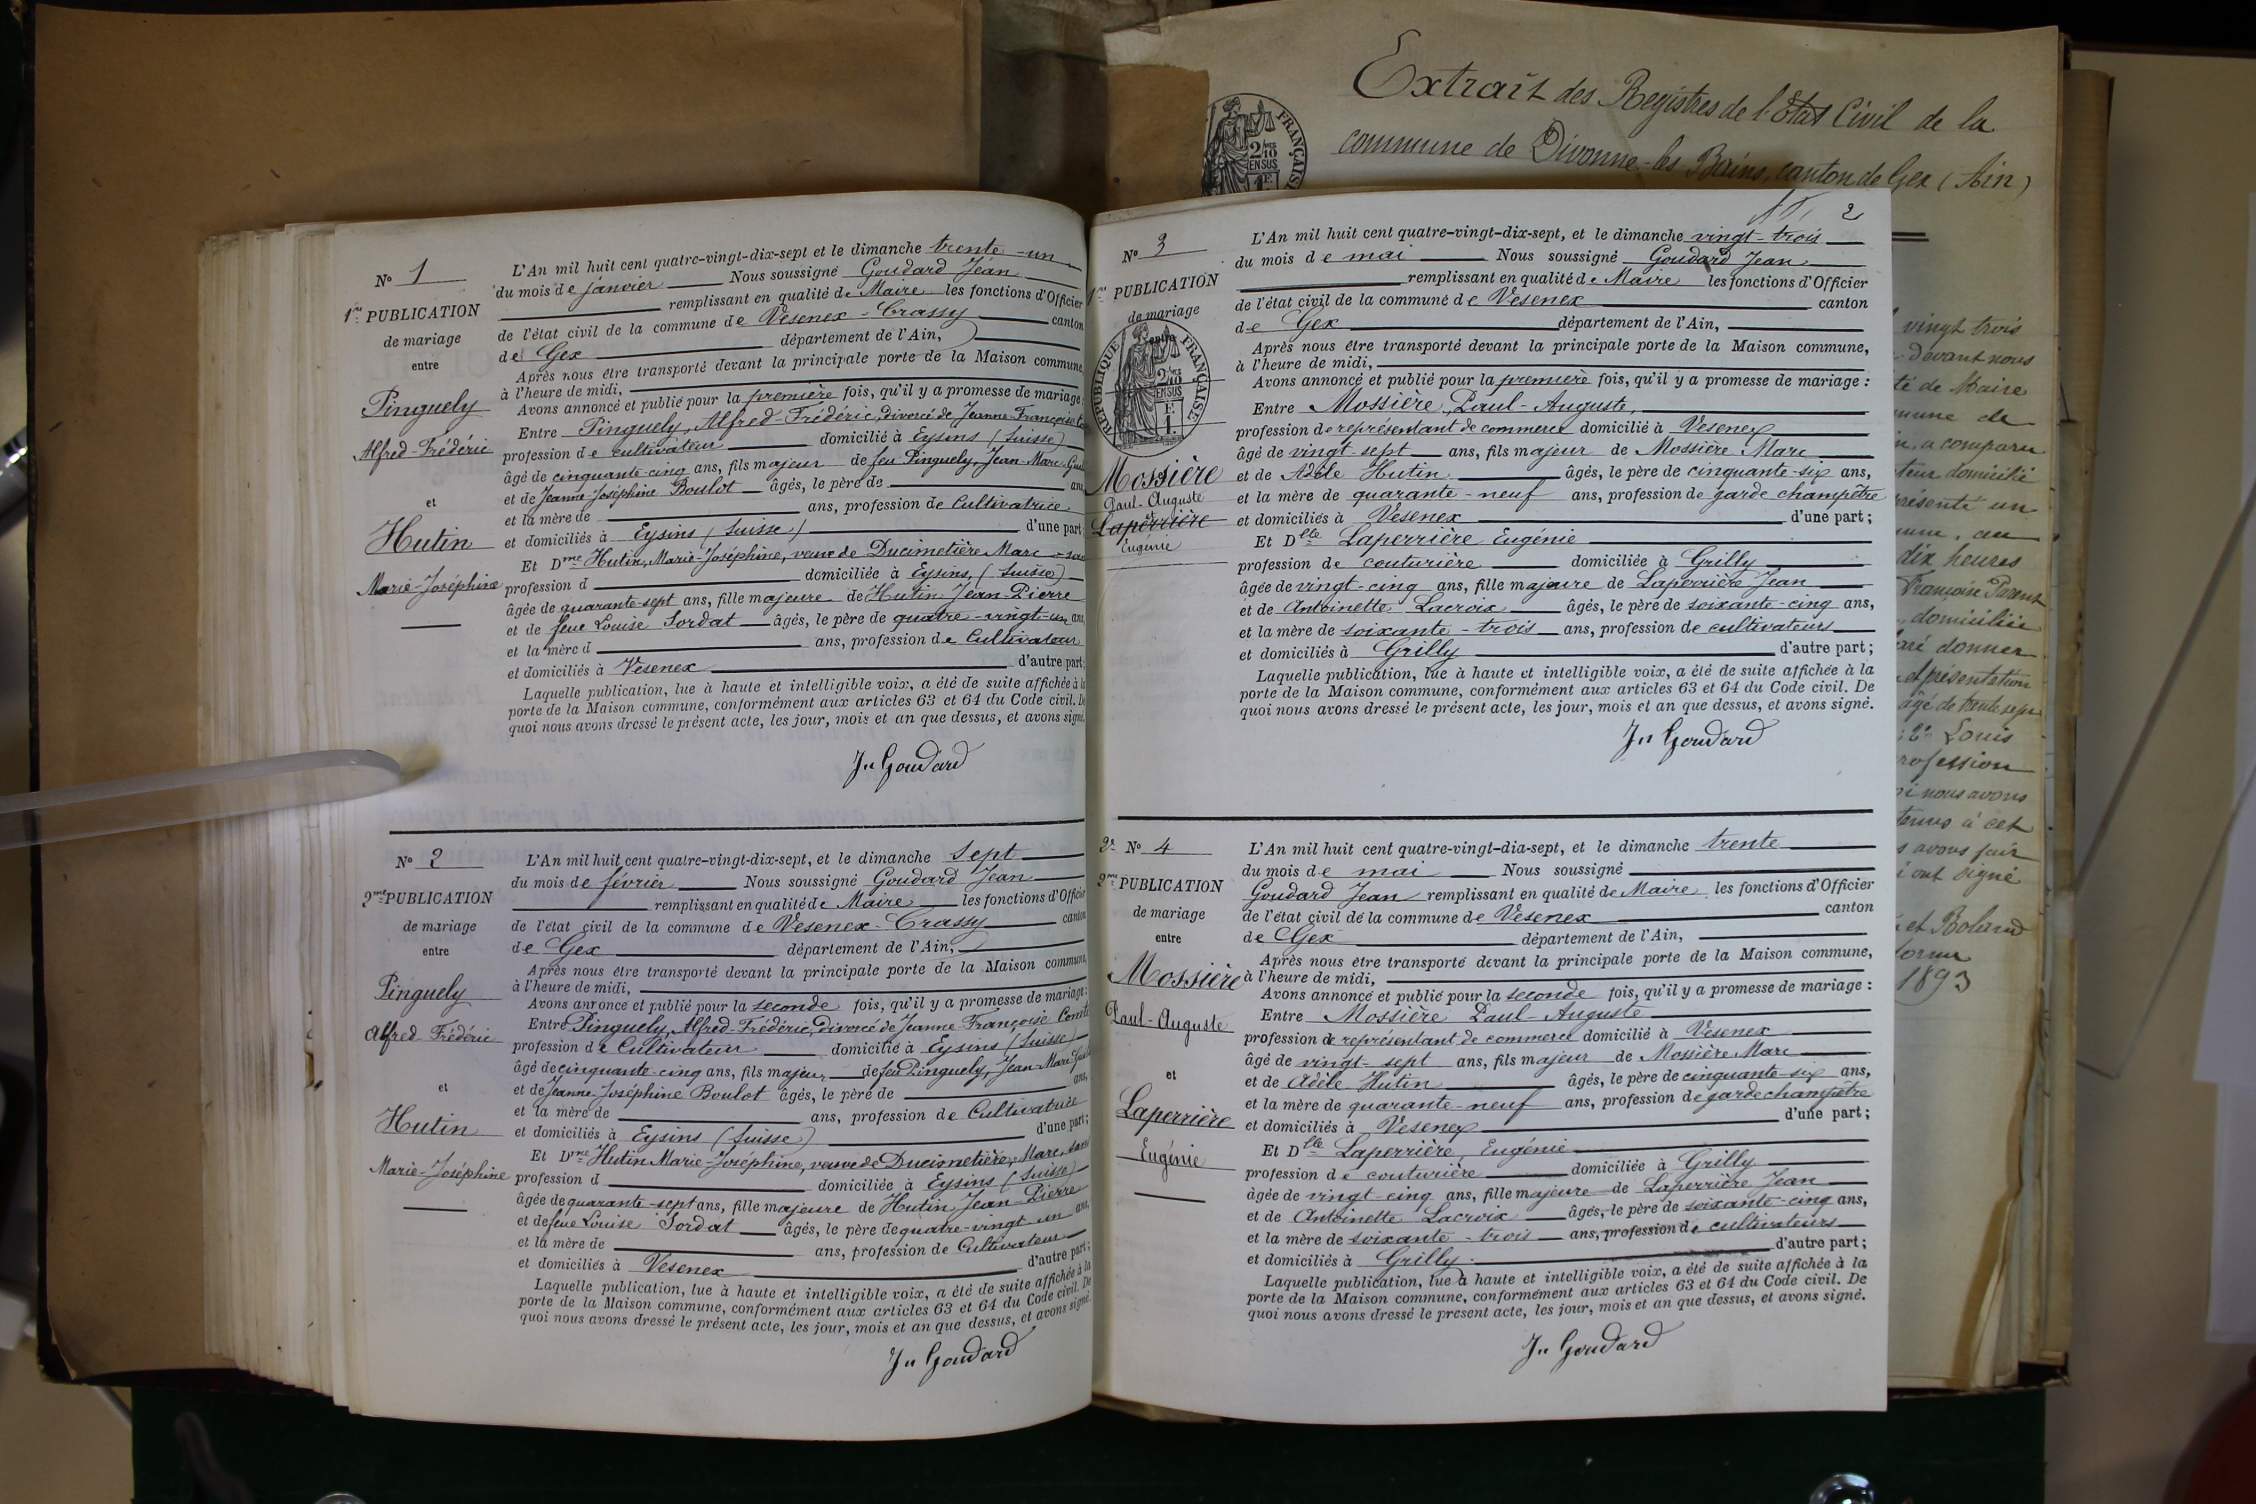 Extrait des Registres de l'Etat Civil de la
commune de Divonne-les-Bains, canton de Gex (Ain)
N° 1
1re PUBLICATION
de mariage
entre
Pinguely
Alfred-Frédéric
et
Hutin
Marie-Joséphine
L'An mil huit cent quatre-vingt-dix-sept et le dimanche trente-un
du mois de janvier Nous soussigné Goudard Jean
remplissant en qualité de Maire les fonctions d'Officier
de l'état civil de la commune de Vesenex-Crassy canton
de Gex département de l'Ain,
Après nous être transporté devant la principale porte de la Maison commune,
à l'heure de midi,
Avons annoncé et publié pour la première fois, qu'il y a promesse de mariage
Entre Pinguely, Alfred-Frédéric, divorcé de Jeanne-Françoise
profession de cultivateur domicilié à Eysins (Suisse)
âgé de cinquante-cinq ans, fils majeur de feu Pinguely, Jean-Marc
et de Jeanne-Joséphine Boulot âgés, le père de ans
et la mère de ans, profession de Cultivatrice
et domiciliés à Eysins (Suisse) d'une part
Et Dme Hutin, Marie-Joséphine, veuve de Ducimetière Marc
profession d domiciliée à Eysins, (Suisse)
âgée de quarante-sept ans, fille majeure de Hutin Jean-Pierre
et de feue Louise Sordat âgés, le père de quatre-vingt-un ans
et la mère d ans, profession de Cultivateur
et domiciliés à Vesenex d'autre part;
Laquelle publication, lue à haute et intelligible voix, a été de suite affichée à la
porte de la Maison commune, conformément aux articles 63 et 64 du Code civil. De
quoi nous avons dressé le présent acte, les jour, mois et an que dessus, et avons signé.
Jn Goudard
N° 2
2me PUBLICATION
de mariage
entre
Pinguely
Alfred Frédéric
et
Hutin
Marie-Joséphine
L'An mil huit cent quatre-vingt-dix-sept, et le dimanche sept
du mois de février Nous soussigné Goudard Jean
remplissant en qualité de Maire les fonctions d'Officier
de l'état civil de la commune de Vesenex-Crassy canton
de Gex département de l'Ain,
Après nous être transporté devant la principale porte de la Maison commune,
à l'heure de midi,
Avons annoncé et publié pour la seconde fois, qu'il y a promesse de mariage:
Entre Pinguely, Alfred-Frédéric, divorcé de Jeanne-Françoise
profession de Cultivateur domicilié à Eysins (Suisse)
âgé de cinquante-cinq ans, fils majeur de feu Pinguely, Jean-Marc
et de Jeanne-Joséphine Boulot âgés, le père de ans,
et la mère de ans, profession de Cultivatrice
et domiciliés à Eysins (Suisse) d'une part;
Et Dme Hutin Marie-Joséphine, veuve de Ducimetière, Marc, sans
profession d domiciliée à Eysins (Suisse)
âgée de quarante-sept ans, fille majeure de Hutin Jean Pierre
et de feue Louise Sordat âgés, le père de quatre-vingt-un ans,
et la mère de ans, profession de Cultivateur
et domiciliés à Vesenex d'autre part;
Laquelle publication, lue à haute et intelligible voix, a été de suite affichée à la
porte de la Maison commune, conformément aux articles 63 et 64 du Code civil. De
quoi nous avons dressé le présent acte, les jour, mois et an que dessus, et avons signé.
Jn Goudard
2
N° 3
1re PUBLICATION
de mariage
entre
RÉPUBLIQUE FRANÇAISE
2/10 EN SUS
1F
Mossière
Paul-Auguste
et
Laperrière
Eugénie
L'An mil huit cent quatre-vingt-dix-sept, et le dimanche vingt-trois
du mois de mai Nous soussigné Goudard Jean
remplissant en qualité de Maire les fonctions d'Officier
de l'état civil de la commune de Vesenex canton
de Gex département de l'Ain,
Après nous être transporté devant la principale porte de la Maison commune,
à l'heure de midi,
Avons annoncé et publié pour la première fois, qu'il y a promesse de mariage:
Entre Mossière, Paul-Auguste,
profession de représentant de commerce domicilié à Vesenex
âgé de vingt-sept ans, fils majeur de Mossière Marc
et de Adèle Hutin âgés, le père de cinquante-six ans,
et la mère de quarante-neuf ans, profession de garde champêtre
et domiciliés à Vesenex d'une part;
Et Dlle Laperrière Eugénie
profession de couturière domiciliée à Grilly
âgée de vingt-cinq ans, fille majeure de Laperrière Jean
et de Antoinette Lacroix âgés, le père de soixante-cinq ans,
et la mère de soixante-trois ans, profession de cultivateurs
et domiciliés à Grilly d'autre part;
Laquelle publication, lue à haute et intelligible voix, a été de suite affichée à la
porte de la Maison commune, conformément aux articles 63 et 64 du Code civil. De
quoi nous avons dressé le présent acte, les jour, mois et an que dessus, et avons signé.
Jn Goudard
N° 4
2me PUBLICATION
de mariage
entre
Mossière
Paul-Auguste
et
Laperrière
Eugénie
L'An mil huit cent quatre-vingt-dia-sept, et le dimanche trente
du mois de mai Nous soussigné
Goudard Jean remplissant en qualité de Maire les fonctions d'Officier
de l'état civil de la commune de Vesenex canton
de Gex département de l'Ain,
Après nous être transporté devant la principale porte de la Maison commune,
à l'heure de midi,
Avons annoncé et publié pour la seconde fois, qu'il y a promesse de mariage:
Entre Mossière Paul-Auguste
profession de représentant de commerce domicilié à Vesenex
âgé de vingt-sept ans, fils majeur de Mossière Marc
et de Adèle Hutin âgés, le père de cinquante-six ans,
et la mère de quarante-neuf ans, profession de garde champêtre
et domiciliés à Vesenex d'une part;
Et Dlle Laperrière, Eugénie
profession de couturière domiciliée à Grilly
âgée de vingt-cinq ans, fille majeure de Laperrière Jean
et de Antoinette Lacroix âgés, le père de soixante-cinq ans,
et la mère de soixante-trois ans, profession de cultivateurs
et domiciliés à Grilly d'autre part;
Laquelle publication, lue à haute et intelligible voix, a été de suite affichée à la
porte de la Maison commune, conformément aux articles 63 et 64 du Code civil. De
quoi nous avons dressé le present acte, les jour, mois et an que dessus, et avons signé.
Jn Goudard
vingt trois
devant nous
de Maire
de
a comparu
domicilié
présenté un
au
dix heures
Françoise Parent
domiciliée
donner
et présentation
âgé de trente sept
2° Louis
profession
nous avons
à cet
avons fait
ont signé
et Roland
1893